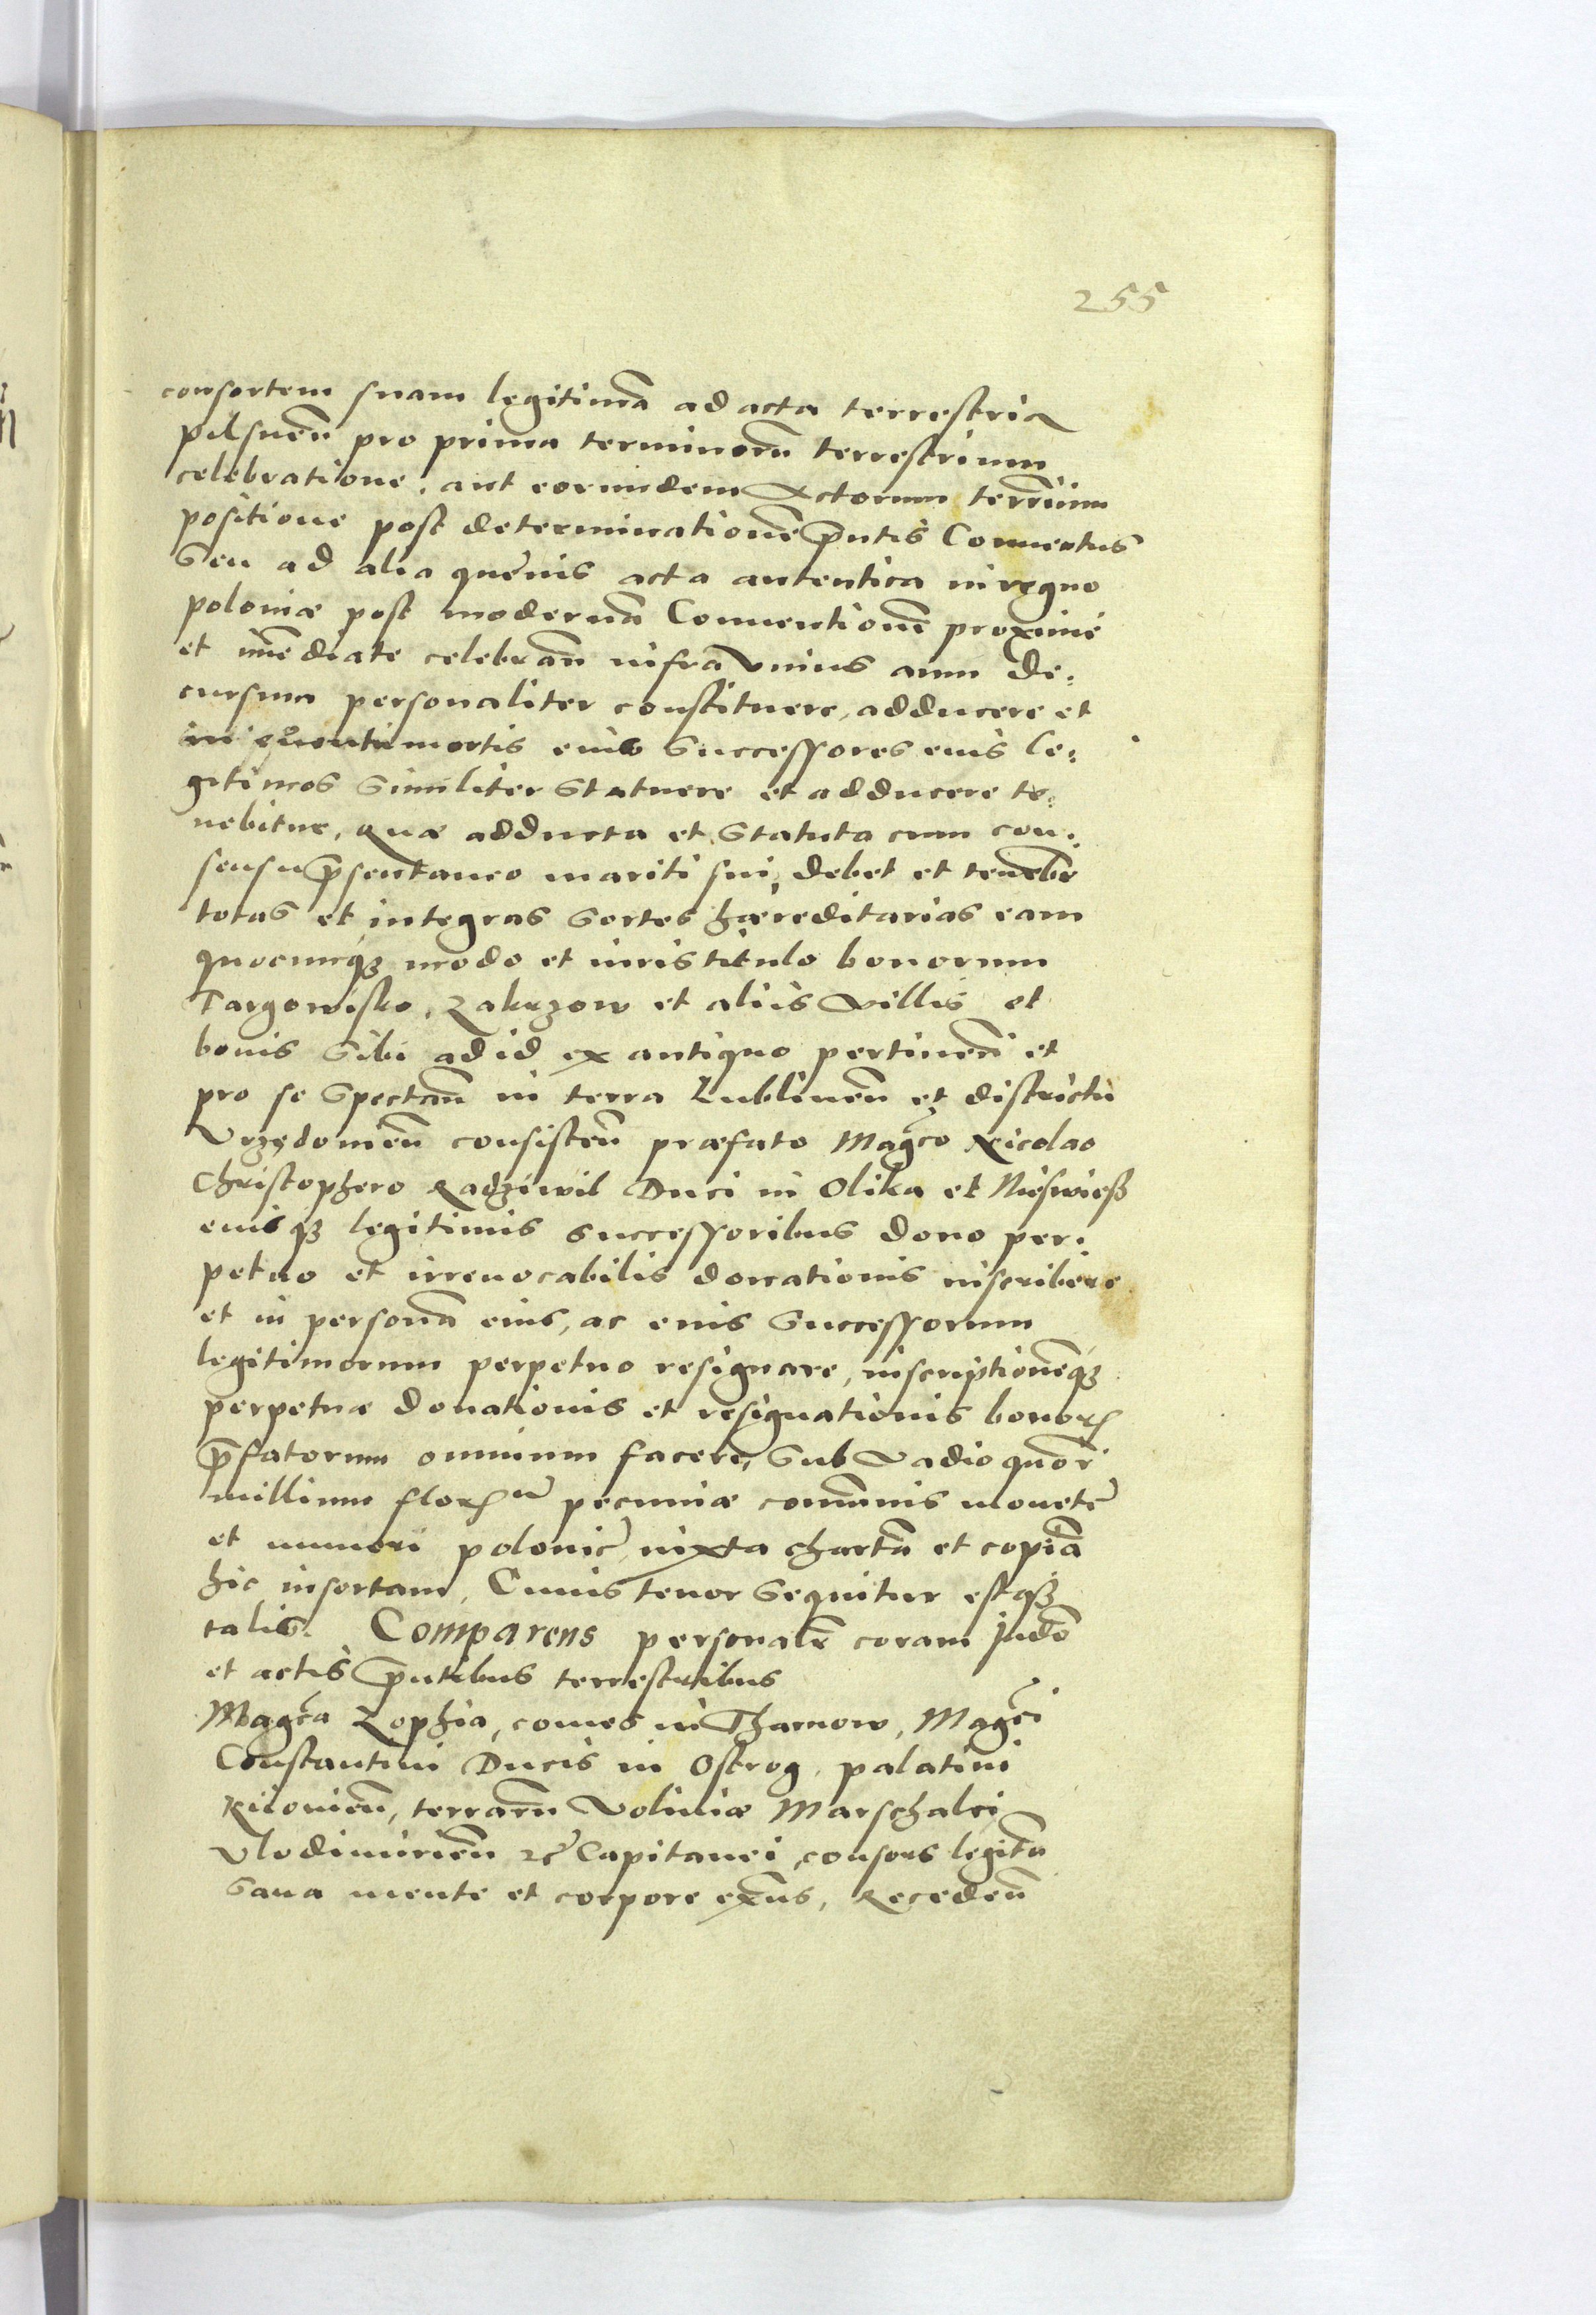 255
consortem suam legitimā ad acta terrestria
pilsneñ pro prima terminorū terrestrium
celebratione, aut eorundem Actorum terrium
positione post determinationē pn̄tis Conuentus
seu ad alia queuis acta autentica in regno
poloniæ post modernā Conuentionē proxime
et im̄ediate celebrañ infra vnius anni de:
cursum personaliter constituere, adducere et
in euentu mortis eius successores eius le:
gitimos similiter statuere et adducere te:
nebitur, quæ adducta et statuta cum con:
sensu p̄sentaneo mariti sui, debet et tenebr̄
totas et integras sortes hæreditarias eam
quocunqꝫ modo et iuris titulo bonorum
Targowisko, Zakrzow et aliis villis et
bonis sibi ad id ex antiquo pertineñ et
pro se spectañ in terra Lublineñ et districtu
Vrzędouieñ consisteñ præfato Mag̃co Nicolao
Christophero Radziwil Duci in Olika et Nieswieß
eiusqꝫ legitimis successoribus dono per:
petuo et irreuocabilis donationis inscribere
et in personā eius, ac eius successorum
legitimorum perpetuo resignare, inscriptionēqꝫ
perpetuæ donationis et resignationis bonoꝝ
p̄fatorum omnium facere, sub vadio quor
millium floꝝū pecuniæ com̄unis monete
et numeri polonic̄, iuxta chartā et copiā
hic insertam, Cuius tenor sequitur estqꝫ
talis. Comparens personalr̄ coram judō
et actis pn̄tibus terrestribus
Mag̃ca Zophia, comes in Tharnow, Mag̃ci
Constantini Ducis in Ostrog, palatini
Kiiouieñ, terrarū Voliniæ Marschalci
Vlodimirieñ ꝛc̄ Capitanei, consors legitia
sana mente et corpore exn̄s, Recedeñ